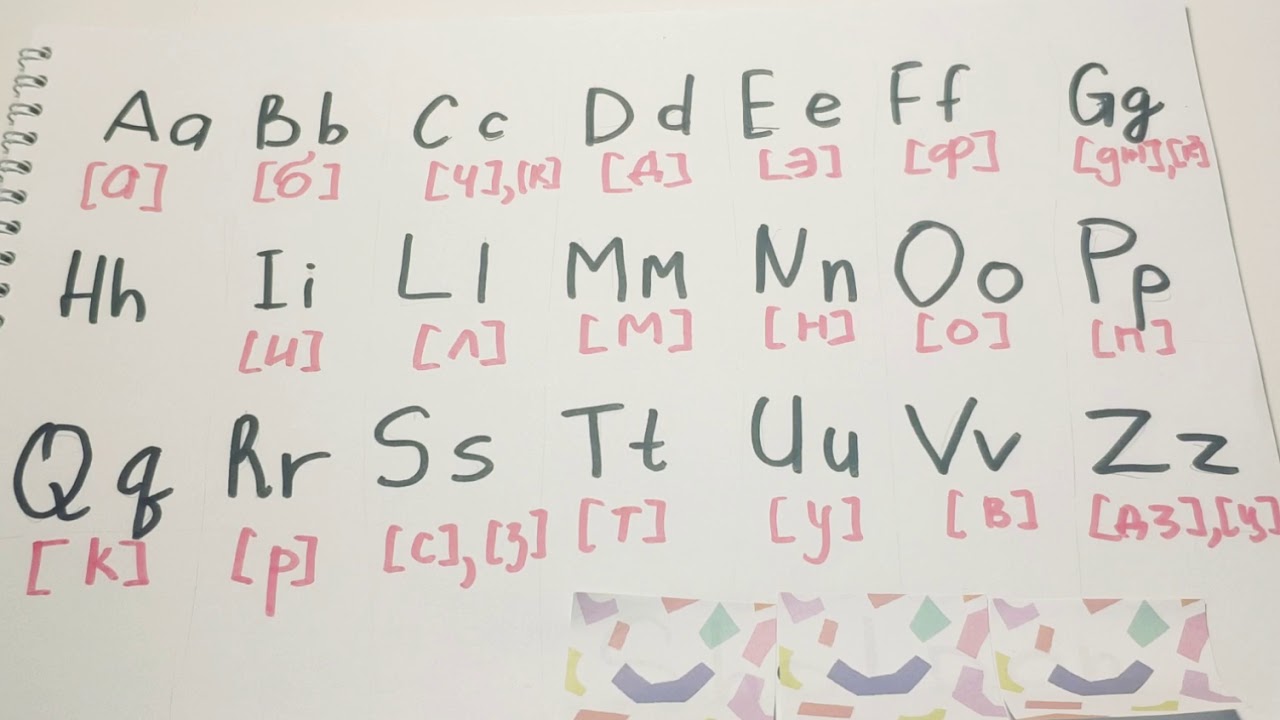 Aa Bb Cc Dd Ee Ff Gg
[а] [б] [ч],[к] [д] [э] [ф] [дж],[г]
Hh Ii Ll Mm Nn Oo Pp
[и] [л] [м] [н] [о] [п]
Qq Rr Ss Tt Uu Vv Zz
[к] [р] [с],[з] [т] [у] [в] [дз],[ц]